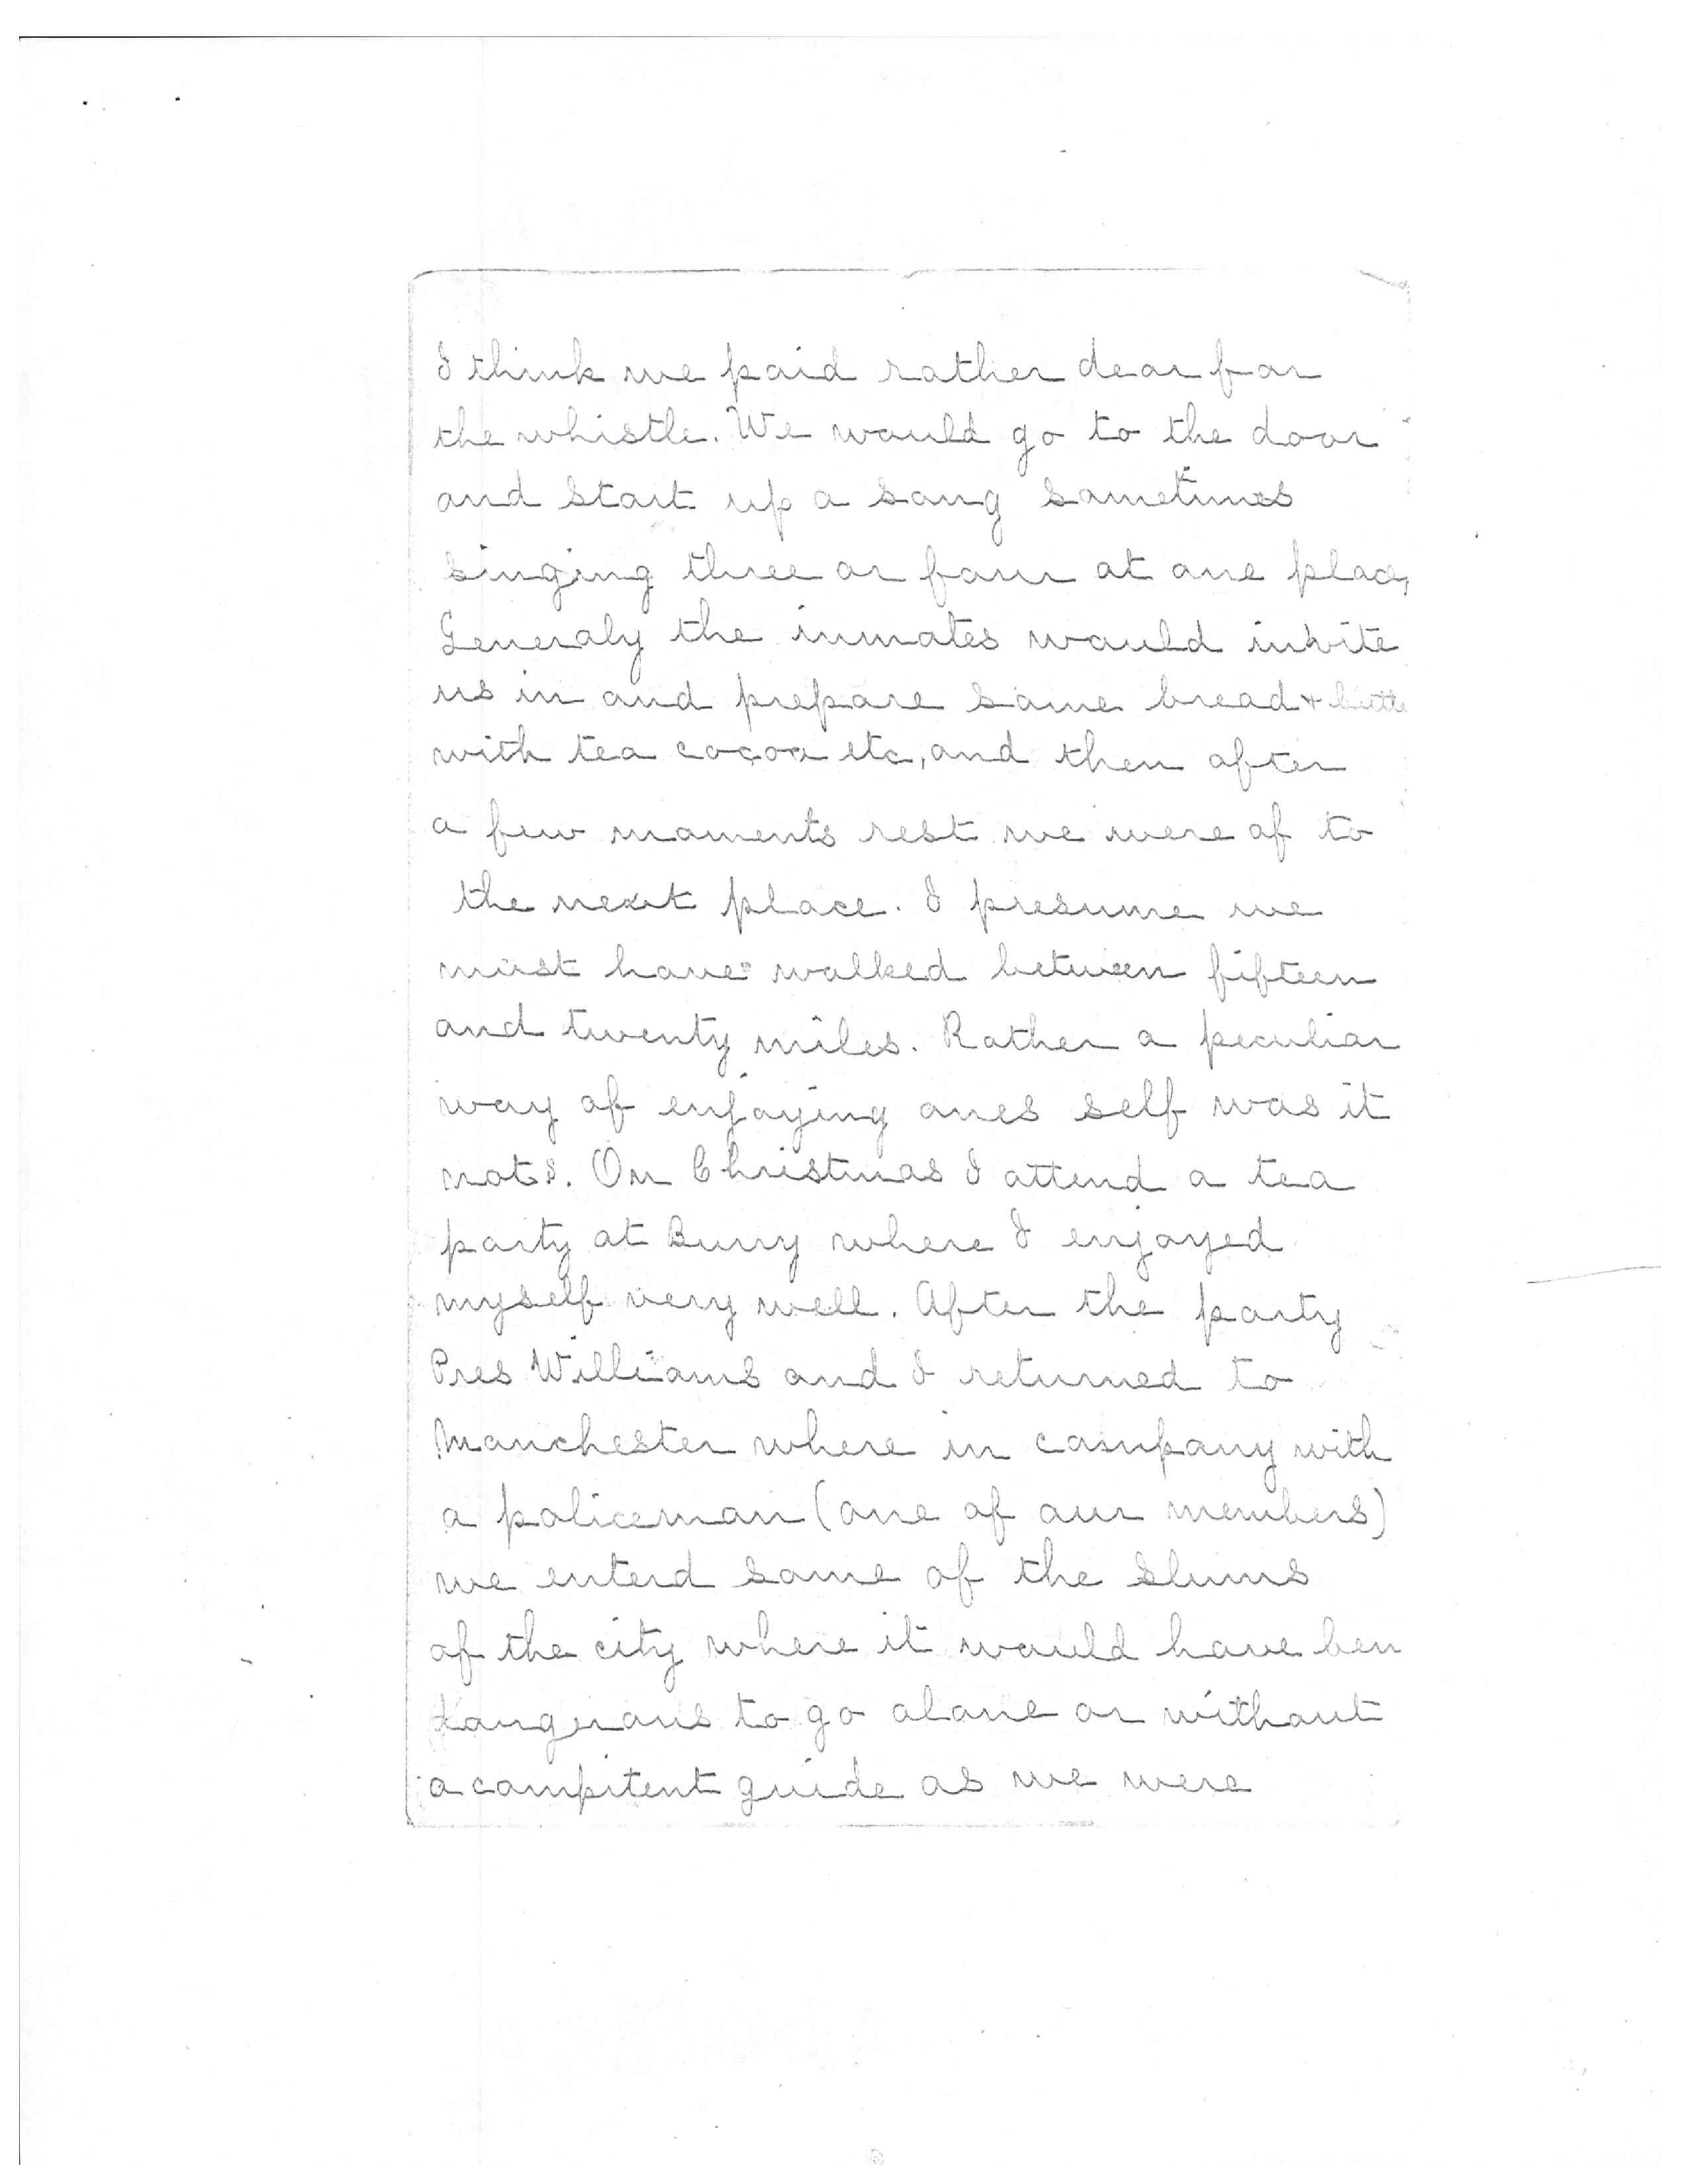 I think we paid rather dear for
the whistle. We would go to the door
and start up a song sometimes
singing three or four at one place,
Generaly the inmates would invite
us in and prepare some bread & butte
with tea cocoa etc, and then after
a few moments rest we were of to
the next place. I presume we
must have walked between fifteen
and twenty miles. Rather a peculiar
way of enjoying ones self was it
not?. On Christmas I attend a tea
party at Burry where I enjoyed
myself very well. After the party
Pres Williams and I returned to
Manchester where in company with
a policeman (one of our members)
we enterd some of the slums
of the city where it would have ben
dangerous to go alone or without
a compitent guide as we were